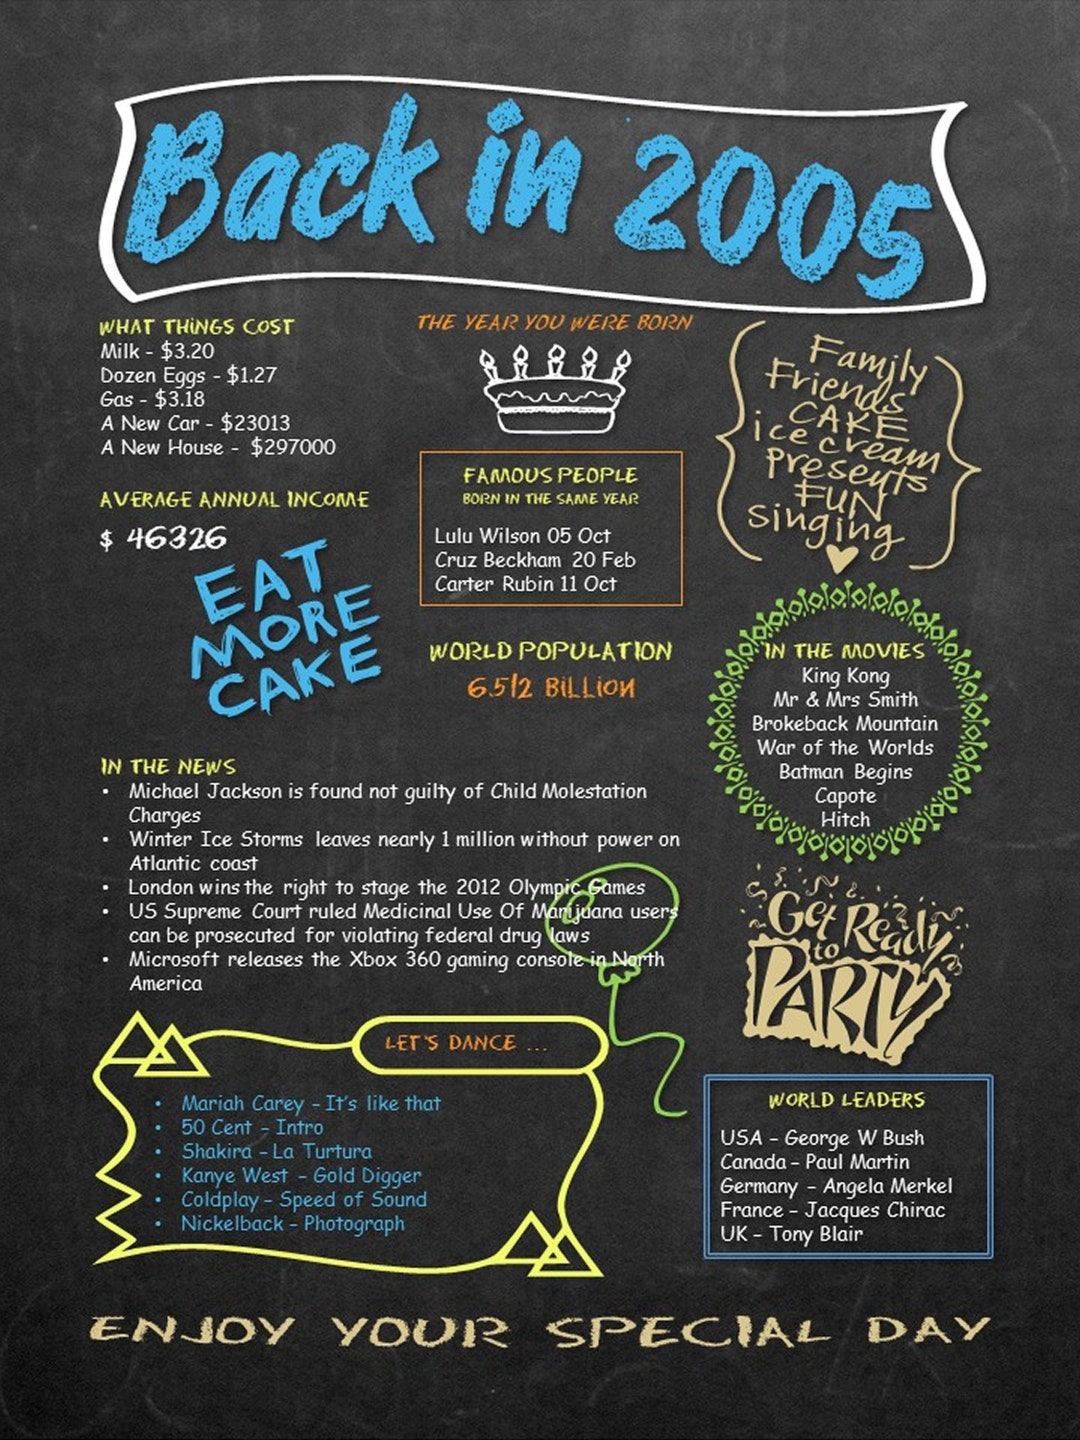 Back in 2005
WHAT THINGS COST
Milk - $3.20
Dozen Eggs - $1.27
Gas - $3.18
A New Car - $23013
A New House - $297000
AVERAGE ANNUAL INCOME
$ 46326
EAT
MORE
CAKE
THE YEAR YOU WERE BORN
FAMOUS PEOPLE
BORN IN THE SAME YEAR
Lulu Wilson 05 Oct
Cruz Beckham 20 Feb
Carter Rubin 11 Oct
WORLD POPULATION
6.512 BILLION
Family
Friends
CAKE
ice cream
presents
FUN
singing
IN THE MOVIES
King Kong
Mr & Mrs Smith
Brokeback Mountain
War of the Worlds
Batman Begins
Capote
Hitch
IN THE NEWS
• Michael Jackson is found not guilty of Child Molestation
Charges
• Winter Ice Storms leaves nearly 1 million without power on
Atlantic coast
• London wins the right to stage the 2012 Olympic Games
• US Supreme Court ruled Medicinal Use Of Marijuana users
can be prosecuted for violating federal drug laws
• Microsoft releases the Xbox 360 gaming console in North
America
Get Ready
to
PARTY
LET'S DANCE ...
• Mariah Carey – It's like that
• 50 Cent – Intro
• Shakira – La Turtura
• Kanye West – Gold Digger
• Coldplay – Speed of Sound
• Nickelback – Photograph
WORLD LEADERS
USA – George W Bush
Canada – Paul Martin
Germany – Angela Merkel
France – Jacques Chirac
UK – Tony Blair
ENJOY YOUR SPECIAL DAY